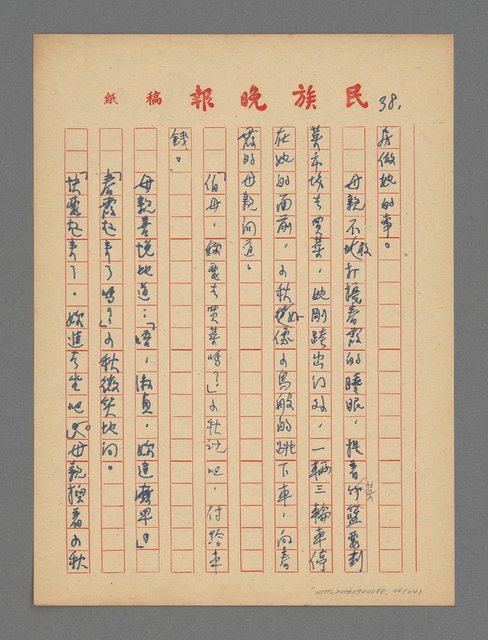 民族晚報 稿紙
38.
房做她的事。
母親不敢打擾春霞的睡眠，提着竹籃要到
菜市埸去買菜，她剛踏出門外，一輛三輪車停
在她的面前，小秋好像小鳥般的跳下車，向春
霞的母親問道。
「伯母，妳要去買菜嗎？」小秋說吧，付給車
錢。
母親喜悅地道：「唔，淑貞，妳這麼早。」
「春霞起來了嗎？」小秋微笑地問。
「快要起來了，妳進去坐吧。」母親換着小秋